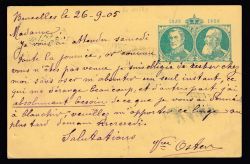 Bruxelles le 26-9-05
1830 1905
Madame,
Je vous ai attendu samedi
toute la journée, or comme
vous n'êtes pas venue je suis obligée de rester chez
moi sans oser m'absenter un seul instant, ce
qui me dérange beaucoup, et d'autre part j'ai
absolument besoin de ce que je vous ai donné
à blanchir, veuillez m'apporter ce linge au
plus tard demain mercredi.
Salutations